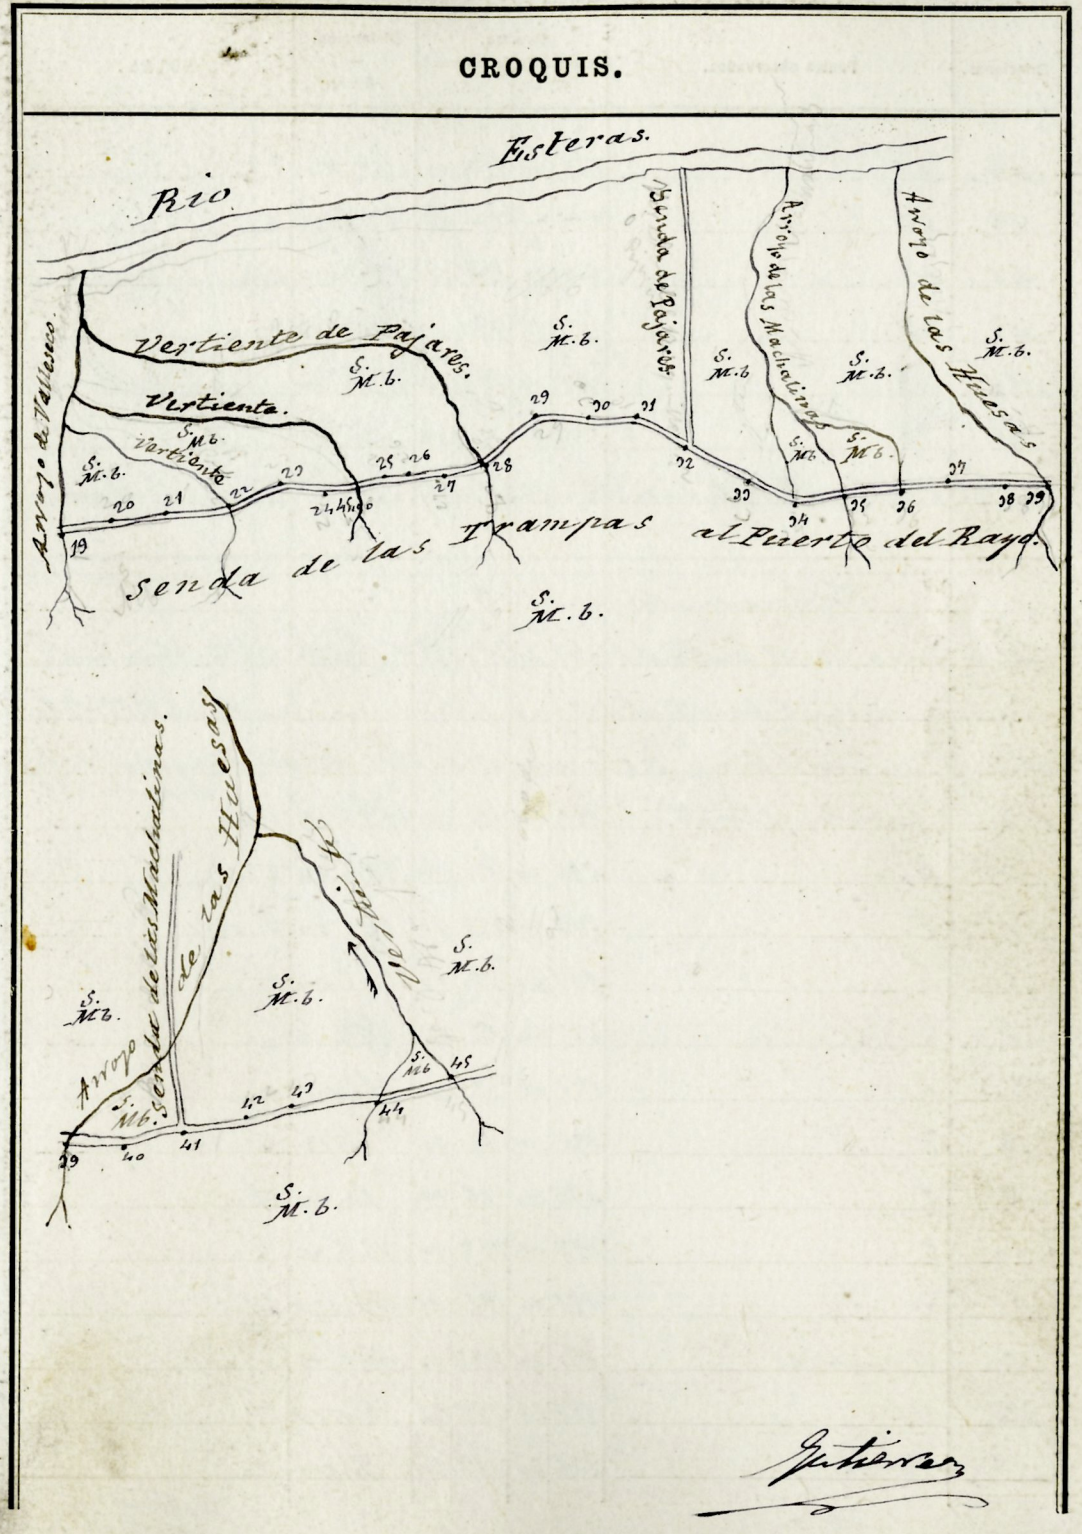 CROQUIS.
Rio Esteras.
Arroyo de Valleseco.
Vertiente de Pajares.
Vertiente.
Vertiente
Senda de Pajares
Arroyo de las Machalinas
Arroyo de las Huesas
S.
M.b.
S.
M.b.
S.
M.b
S.
M.b.
S.
M.b.
S.
M.b.
S.
Mb.
S.
Mb
S.
Mb.
19 20 21 22 23 24 25 26 27 28 29 30 31 32 33 34 35 36 37 38 39
Senda de las Trampas al Puerto del Rayo.
S.
M.b.
Senda de las Machalinas.
Arroyo de las Huesas
Vertiente
S.
Mb.
S.
M.b.
S.
M.b.
S.
Mb.
S.
Mb
39 40 41 42 43 44 45
S.
M.b.
Gutierrez